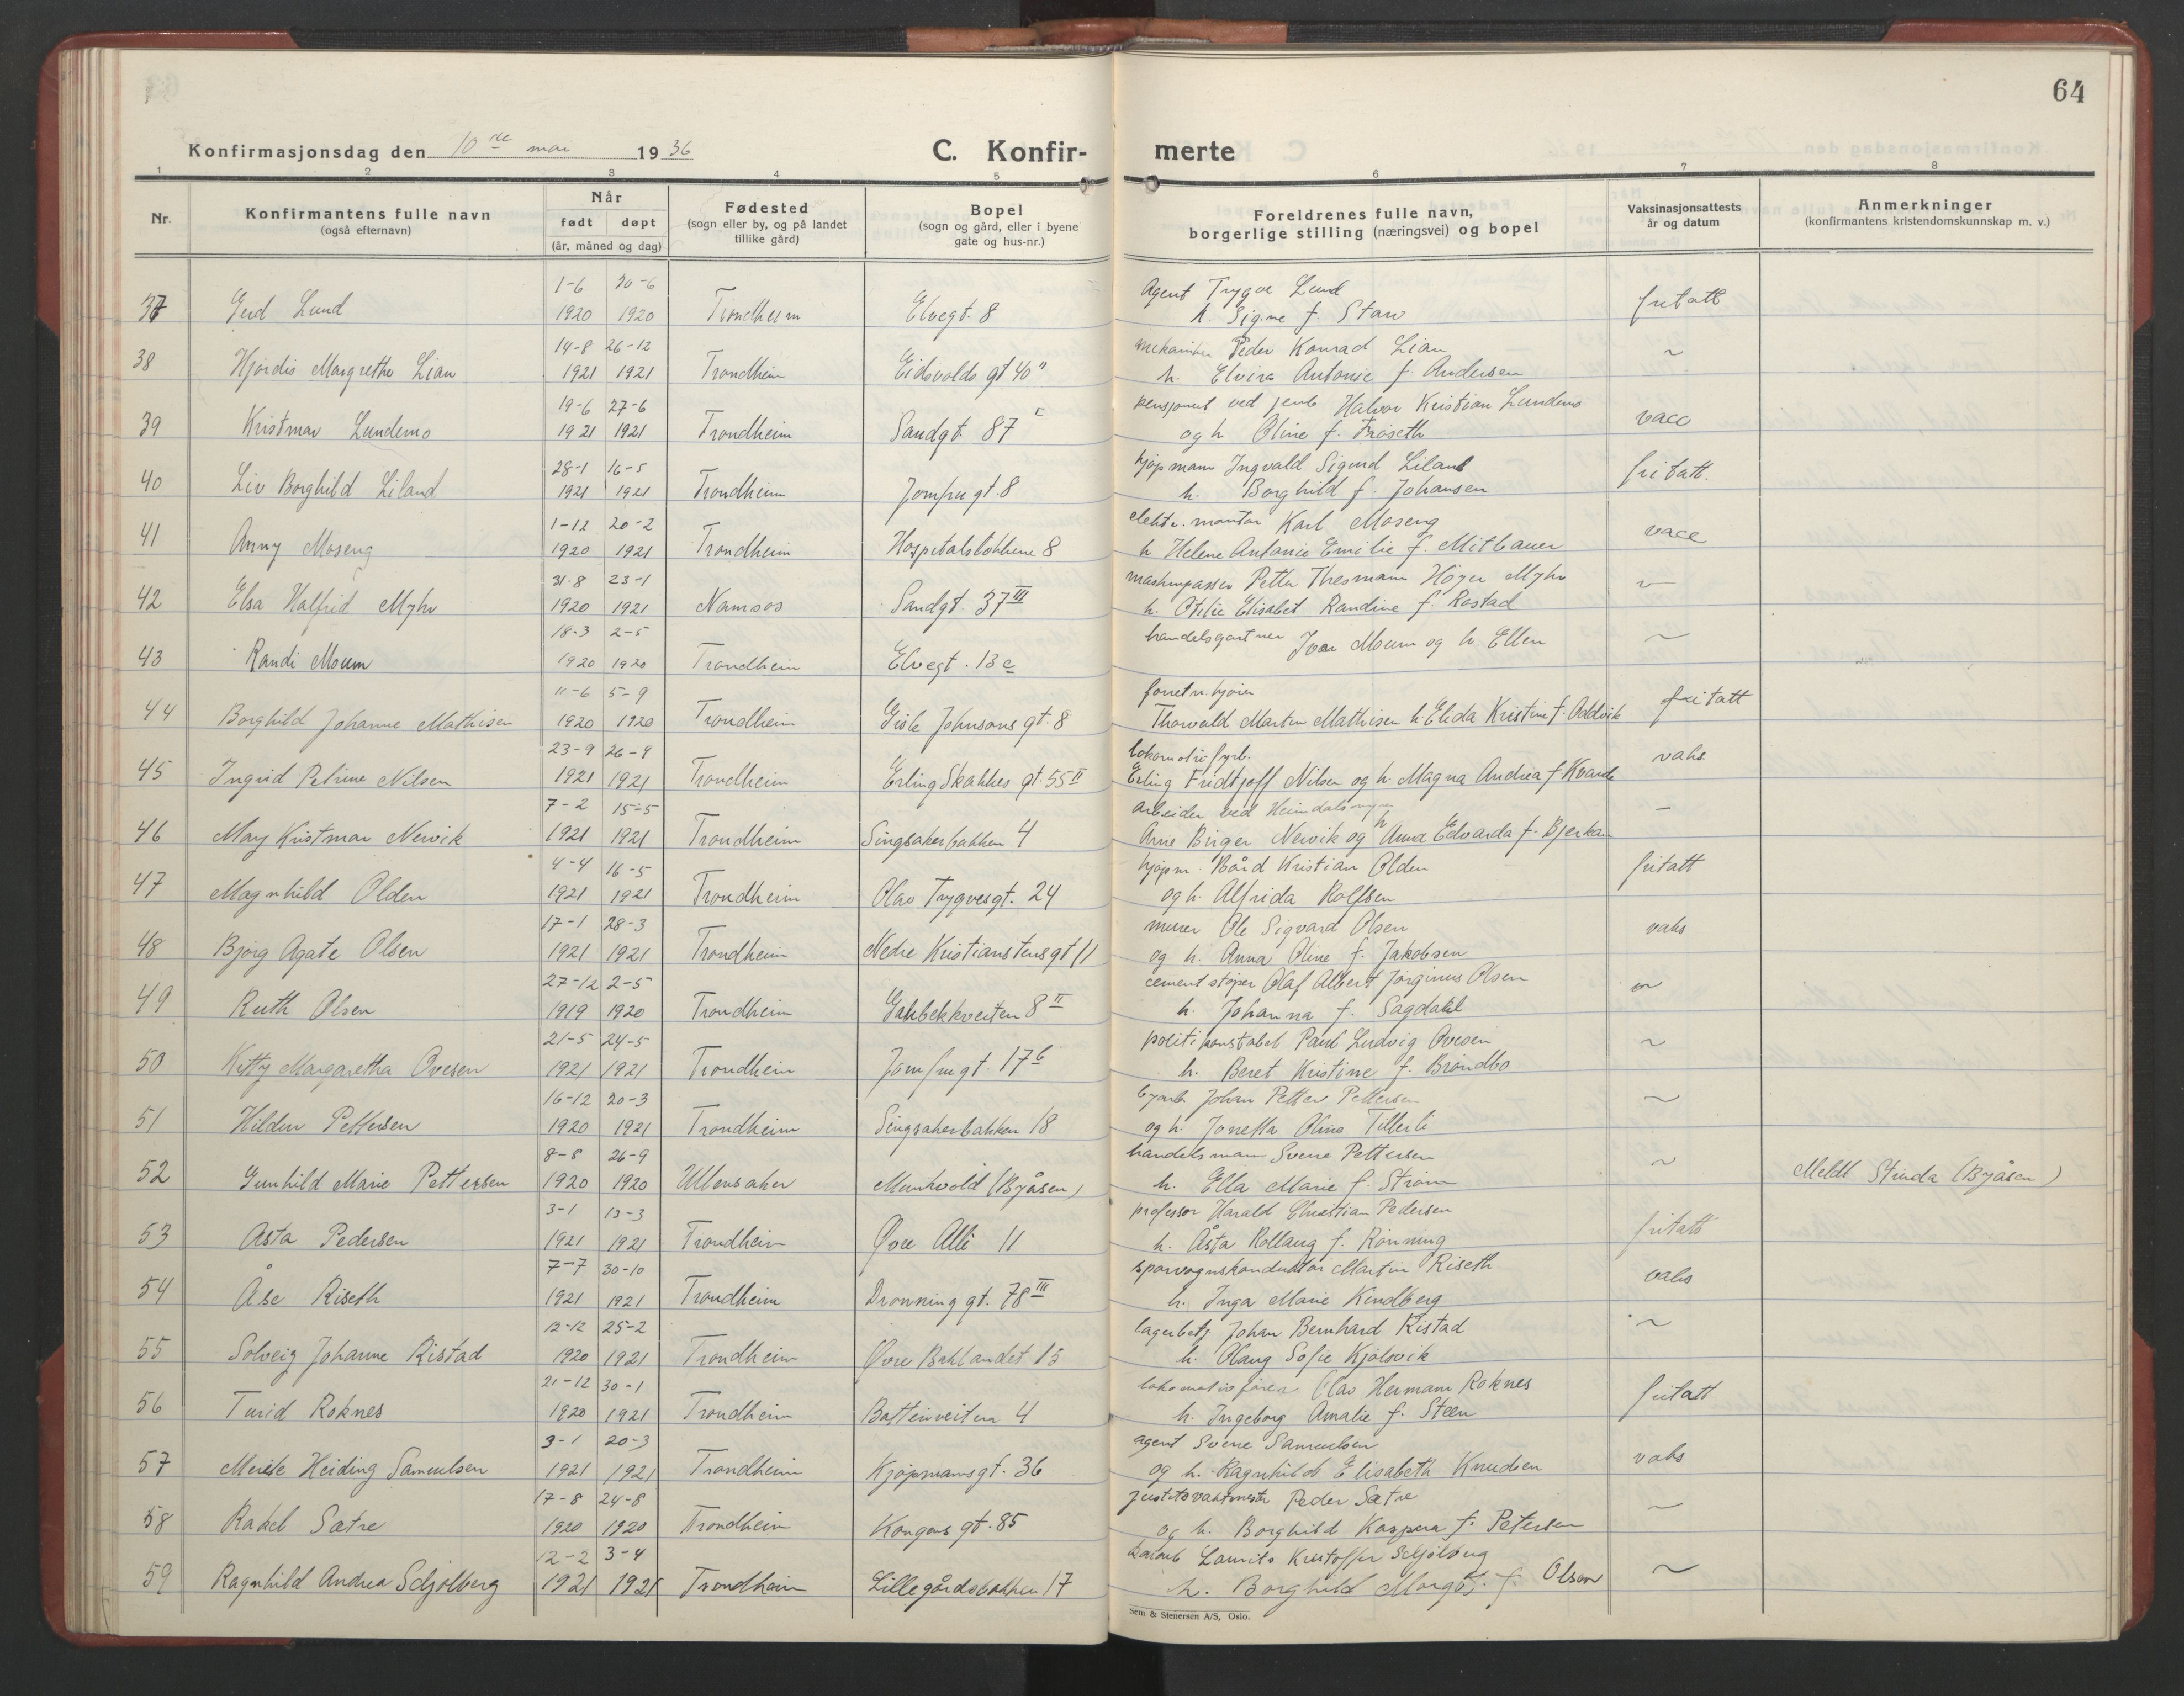 64
Konfirmasjonsdag den 10de mai 1936
C. Konfir-
merte
1 2 3 4 5 6 7 8
Nr.
Konfirmantens fulle navn
(også efternavn)
Når
født døpt
(år, måned og dag)
Fødested
(sogn eller by, og på landet
tillike gård)
Bopel
(sogn og gård, eller i byene
gate og hus-nr.)
Foreldrenes fulle navn,
borgerlige stilling (næringsvei) og bopel
Vaksinasjonsattests
år og datum
Anmerkninger
(konfirmantens kristendomskunnskap m. v.)
1-6 20-6 Agent Trygve Lund
37 Gerd Lund 1920 1920 Trondheim Elvegt. 8 h. Signe f. Staw fritatt
14-8 26-12 mekaniker Peder Konrad Lian
38 Hjørdis Margrethe Lian 1921 1921 Trondheim Eidsvolds gt 40" h. Elvira Antonie f. Andersen ~
19-6 27-6 pensjonert ved jernb Halvor Kristian Lundemo
39 Kristmar Lundemo 1921 1921 Trondheim Sandgt. 87 og h. Oline f. Frøseth vacc
28-1 16-5 kjøpmann Ingvald Sigurd Liland
40 Liv Borghild Liland 1921 1921 Trondheim Jomfrugt. 8 h. Borghild f. Johansen fritatt.
1-12 20-2 elektr. montør Karl Moseng
41 Anny Moseng 1920 1921 Trondheim Hospitalsløkkene 8 h Helene Antonie Emilie f. Mitbauer vacc
31-8 23-1 maskinpasser Petter Thesmann Høyer Myhr
42 Elsa Halfrid Myhr 1920 1921 Namsos Sandgt. 37 III h. Otilie Elisabet Randine f. Rostad ~
18-3 2-5 handelsgartner Ivar Moum og h. Ellen ~
43 Randi Moum 1920 1920 Trondheim Elvegt. 13 c
11-6 5-9 forretn.
44 Borghild Johanne Mathisen 1920 1920 Trondheim Gisle Johnsons gt. 8 Thorvald Martin Mathisen h. Elida Kristine f. Oddvik fritatt
23-9 26-9 lokomotivfyrb.
45 Ingrid Petrine Nilsen 1921 1921 Trondheim Erling Skakkes gt. 55 II Erling Fridtjoff Nilsen og h. Magna Andrea f Kvande vaks
7-2 15-5 arbeider ved
46 May Kristmar Nervik 1921 1921 Trondheim Singsakerbakken 4 Arne Birger Nervik og h Anna Edvarda f. Bjerkan —
4-4 16-5 kjøpm. Bård Kristian Olden
47 Magnhild Olden 1921 1921 Trondheim Olav Trygvesgt. 24 og h. Alfrida Rolfsen fritatt
17-1 28-3 murer Ole Sigvard Olsen
48 Bjørg Agate Olsen 1921 1921 Trondheim Nedre Kristianstensgt 11 og h. Anna Oline f. Jakobsen vaks
27-12 2-5 cementstøper Olaf Albert Jørginus Olsen
49 Ruth Olsen 1919 1920 Trondheim Gaubekkveiten 8 II h. Johanna f. Sagdahl ~
21-5 24-5 politikonstabel Paul Ludvig Ovesen
50 Kitty Margaretha Ovesen 1921 1921 Trondheim Jomfrugt. 17 b h. Beret Kristine f. Brøndbo ~
16-12 20-3 Johan Petter Pettersen
51 Hildur Pettersen 1920 1921 Trondheim Singsakerbakken 18 og h. Jonetta Oline Tillerli ~
8-8 26-9 handelsmann Sverre Pettersen
52 Gunhild Marie Pettersen 1920 1920 Ullensaker Munkvold (Byåsen) h. Ella Marie f. Strøm ~ Meldt Strinda (Byåsen)
3-1 13-3 professor Harald Christian Pedersen
53 Åsta Pedersen 1921 1921 Trondheim Øvre Allé 11 h. Åsta Rollaug f. Rønning fritatt
7-7 30-10 sporvognskonduktør Martin Riseth
54 Åse Riseth 1921 1921 Trondheim Dronning gt. 78 III h. Inga Marie Kindberg vaks
12-12 25-2 lagerbetj. Johan Bernhard Ristad
55 Solveig Johanne Ristad 1920 1921 Trondheim Øvre Bakklandet 15 h. Olaug Sofie Kjølsvik ~
21-12 30-1 lokomotivfører Olav Hermann Roknes
56 Turid Roknes 1920 1921 Trondheim Brattenveiten 4 h. Ingeborg Amalie f. Steen fritatt
3-1 20-3 agent Sverre Samuelsen
57 Merete Heiding Samuelsen 1921 1921 Trondheim Kjøpmannsgt. 36 og h. Ragnhild Elisabeth Knudsen vaks
17-8 24-8 justitsvaktmester Peder Sætre
58 Rakel Sætre 1920 1920 Trondheim Kongens gt. 85 og h. Borghild Kaspara f. Petersen ~
12-2 3-4 Laurits Kristoffer Schjølberg
59 Ragnhild Andrea Schjølberg 1921 1921 Trondheim Lillegårdsbakken 17 h. Borghild Margot f. Olsen ~
Sem & Stenersen A/S, Oslo.